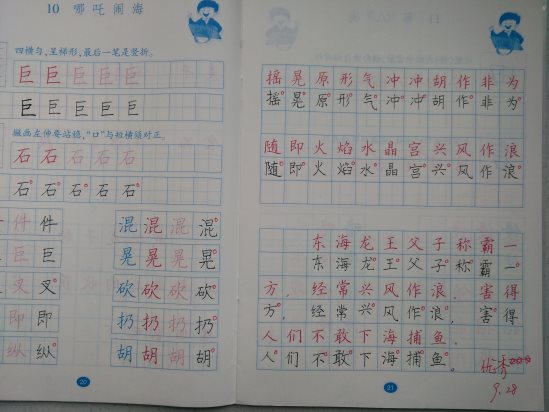 10 哪吒闹海
四横匀,呈梯形,最后一笔是竖折。
巨 巨 巨 巨 巨
巨 巨 巨 巨 巨
撇画左伸要站稳,“口”与短横须对正。
石 石 石 石 石
石 石 石 石 石
件 件
巨 巨
叉 叉
即 即
纵 纵
混 混 混 混
晃 晃 晃 晃
砍 砍 砍 砍
扔 扔 扔 扔
胡 胡 胡 胡
20
摇晃原形气冲冲胡作非为
摇晃原形气冲冲胡作非为
随即火焰水晶宫兴风作浪
随即火焰水晶宫兴风作浪
东海龙王父子称霸一
东海龙王父子称霸一
方,经常兴风作浪,害得
方,经常兴风作浪,害得
人们不敢下海捕鱼。
人们不敢下海捕鱼。
优秀
9.28
21